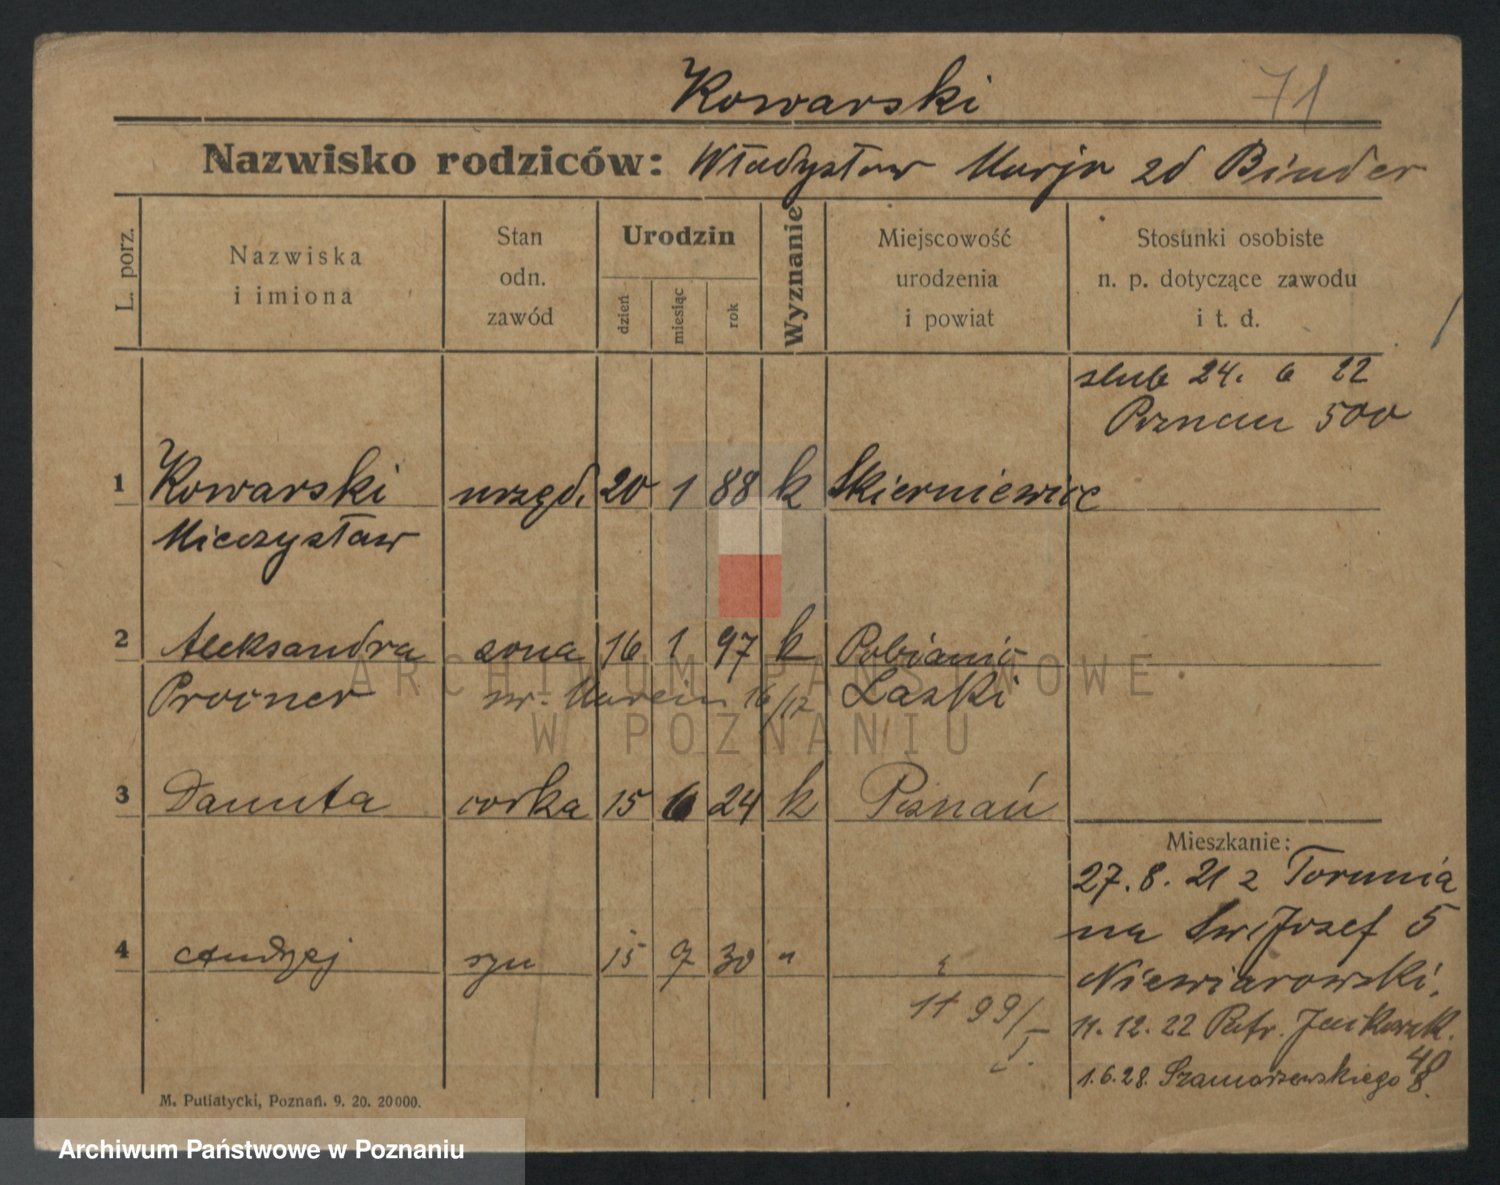 Kowarski 71
Nazwisko rodziców: Władysław Marja zd Binder
L. porz.
Nazwiska
i imiona
Stan
odn.
zawód
Urodzin
dzień
miesiąc
rok
Wyznanie
Miejscowość
urodzenia
i powiat
Stosunki osobiste
n. p. dotyczące zawodu
i t. d.
slub 24. 6 22
Poznan 500
1 Kowarski urzęd. 20 1 88 k Skierniewice
Mieczysław
2 Aleksandra zona 16 1 97 k Pobianic
Procner 16/12 Laski
3 Danuta corka 15 6 24 k Poznań
Mieszkanie:
27. 8. 21 z Torunia
na Sw Jozef 5
4 Andrzej syn 15 9 30 "
Niewiarowski.
11. 12. 22 Patr. Jackowsk.
48
1. 6. 28. Szamarzewskiego 8.
M. Putiatycki, Poznań. 9. 20. 20000.
ARCHIWUM PAŃSTWOWE
W POZNANIU
Archiwum Państwowe w Poznaniu